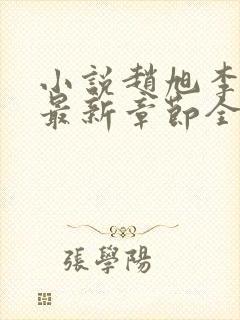 小說趙旭李
最新章節全
張學陽